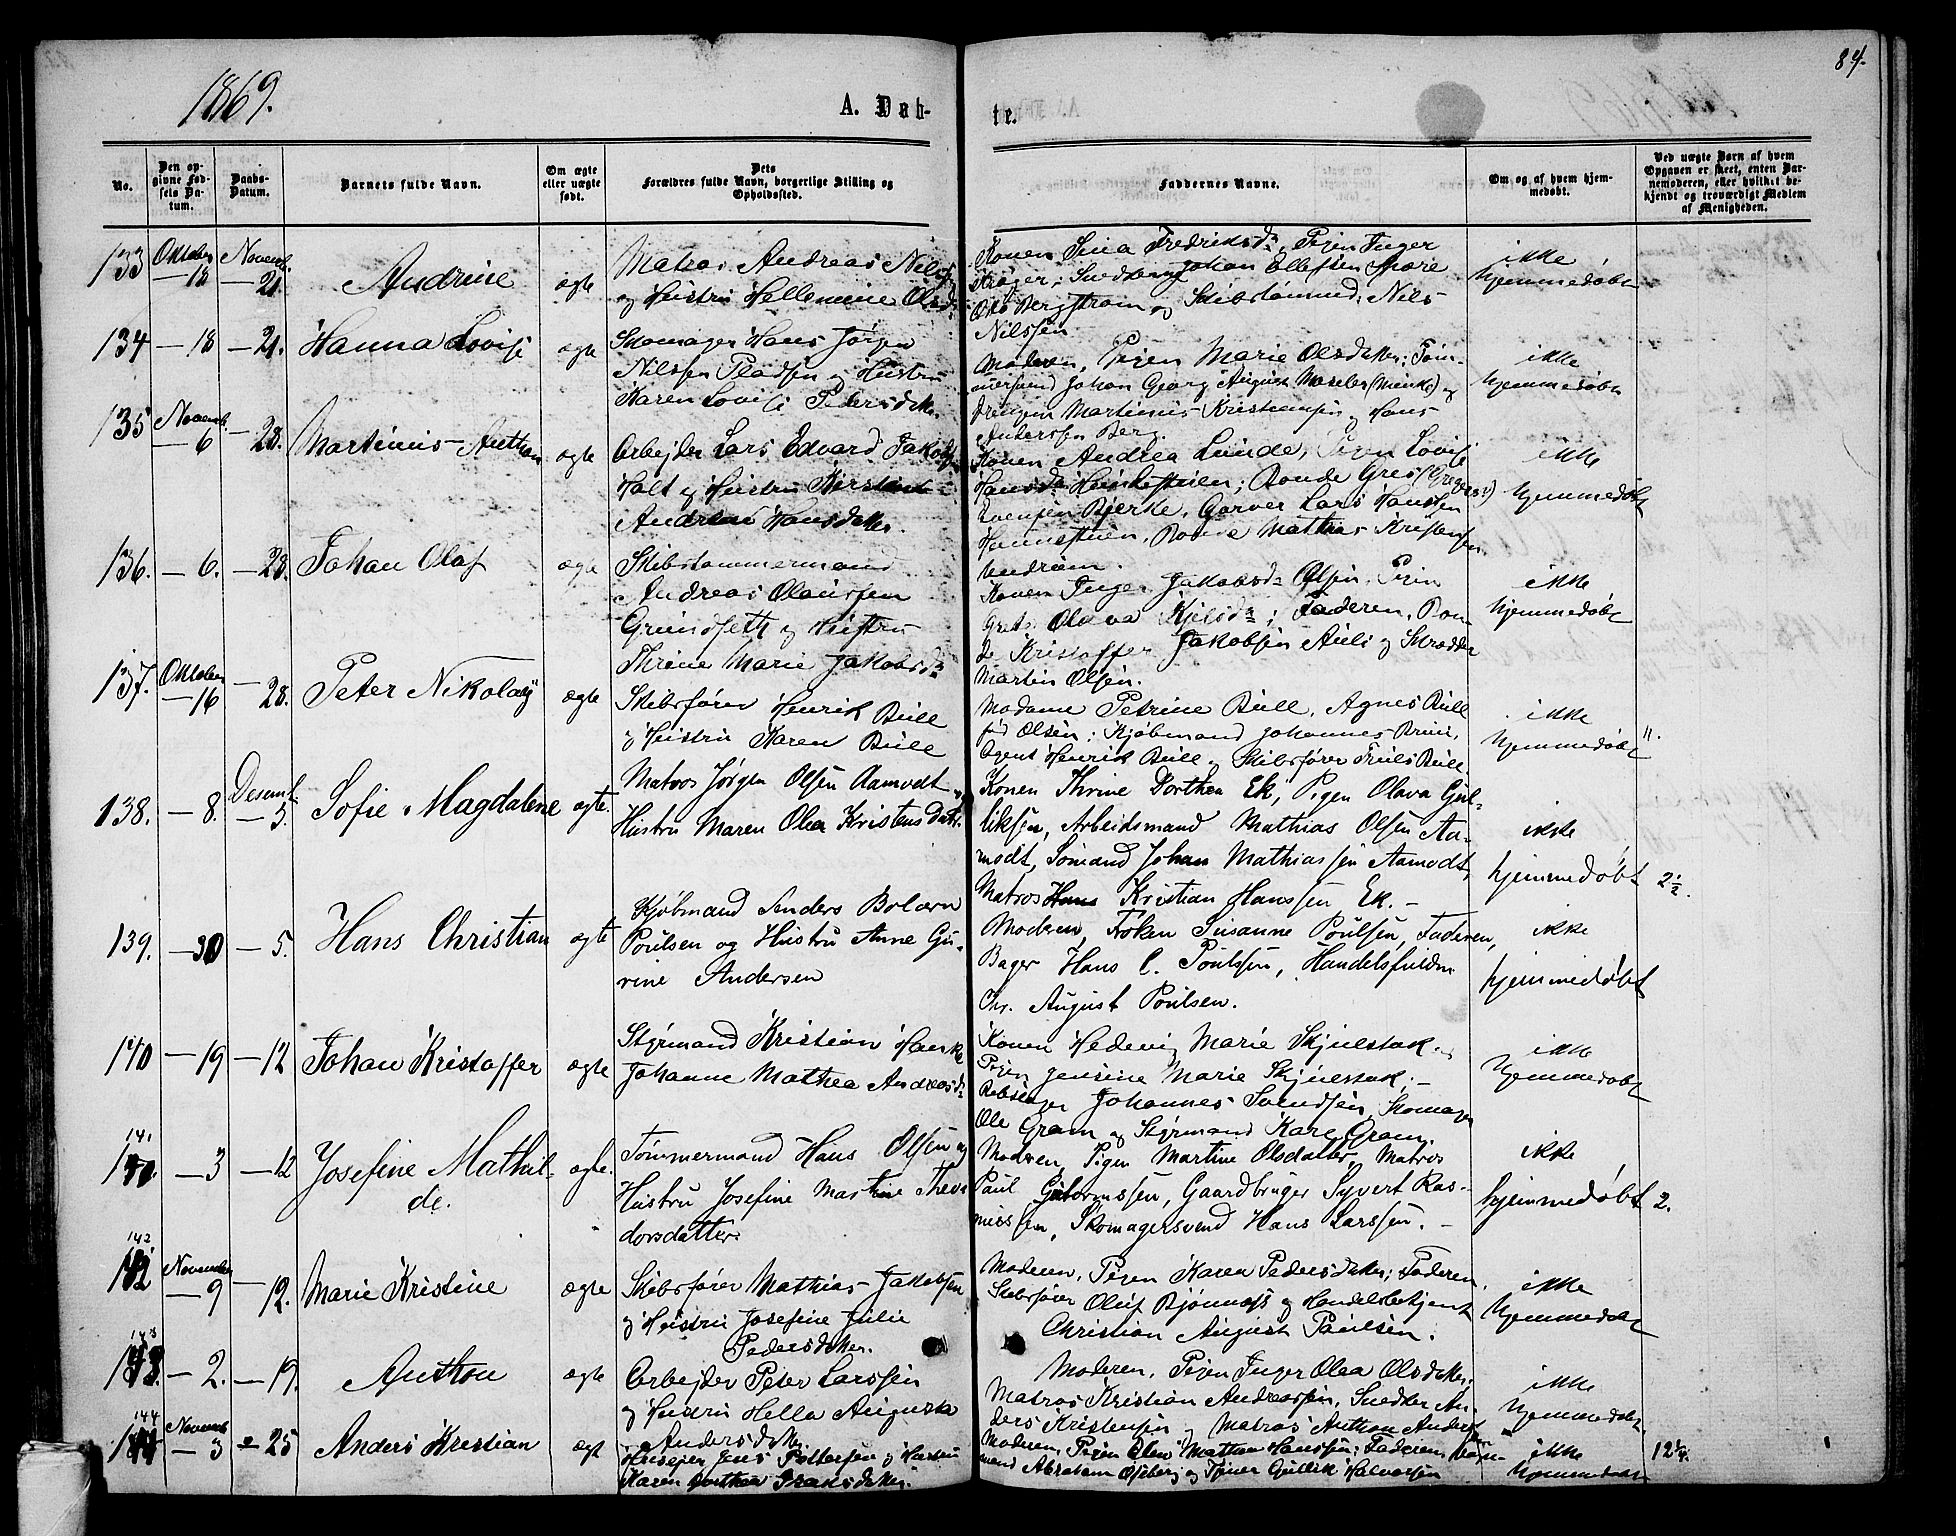 84.
1869.
A. Døb-
te.
No.
Den op-
givne Fød-
sels Da-
tum.
Daabs-
Datum.
Barnets fulde Navn.
Om ægte
eller uægte
født.
Dets
Forældres fulde Navn, borgerlige Stilling og
Opholdssted.
Faddernes Navne.
Om og af hvem hjem-
medøbt.
Ved uægte Børn af hvem
Opgaven er skeet, enten Bar-
nemoderen, eller hvilket be-
kjendt og troværdigt Medlem
af Menigheden.
133 Oktober — 18 Novemb. — 21. Andrine ægte
Matros Andreas Nilsen
og Hustru Hellemine Olsd.
Konen Sina Fredriksdr, Pigen Inger
Krøger; Johan Ellefsen
Bergstrøm og Skibstømmd. Nils
Nilssen
ikke
hjemmedøbt
134 — 18 — 21. Hanna Lovise ægte
Skomager Hans Jørgen
Nilssen og Hustru
Karen Lovise Pedersdatter.
Moderen, Pigen Marie Olsdatter; Tøm-
mersvend Johan Georg August og
drengen Martinius Kristiansen og Hans
Anderssen Berg.
ikke
hjemmedøbt
135 Novemb. — 6 — 28. Martinius Anthon ægte
Arbejder Lars Edvard Jakobs.
Holt og Hustru
Andrea Hansdatter.
Konen Andrea Lunde, Pigen Lovise
Hansdr; Bonde Gres (Gregers)
Evensen Bjerke, Garver Lars Hanssen
Bonde Mathias Kristensen
ikke
hjemmedøbt
136. — 6. — 28. Johan Olaf ægte
Skibstømmermand
Andreas Olaussen
Grundseth og Hustru
Thrine Marie Jakobsdr
Konen Inger Jakobsdr Olsen, Pigen
Olava Kjelsdr; Faderen, Bon-
de Kristoffer Jakobsen Auli og Skrædder
Martin Olsen.
ikke
hjemmedøbt
137. Oktober — 16 — 28. Peter Nikolay ægte
Skibsfører Henrik Bull
og Hustru Karen Bull
Madame Petrine Bull, Agnes Bull
fød Olsen; Kjøbmand Johannes Bruun,
Agent Henrik Bull og Skibsfører Truls Bull.
ikke
hjemmedøbt
11.
138. — 8. Desemb. — 5. Sofie Magdalene ægte.
Matros Jørgen Olsen Aamodt og
Hustru Maren Olea Kristensdatr.
Konen Thrine Dorthea Ek, Pigen Olava Gul-
liksen, Arbeidsmand Mathias Olsen Aa-
modt, Sømand Johan Mathiassen Aamodt,
Matros Hans Kristian Hanssen Ek. —
ikke
hjemmedøbt
2½.
139. — 30 — 5. Hans Christian ægte
Kjøbmand Anders Bolærn
Poulsen og Hustru Anne Gu-
rine Andersen
Moderen, Frøken Susanne Poulsen, Faderen,
Bager Hans C. Poulssen, Handelsfuldm.
Chr. August Poulsen.
ikke
hjemmedøbt
140 — 19 — 12 Johan Kristoffer ægte
Styrmand Kristian
Johanne Mathea Andreasdr
Konen Hedevig Marie Skjulstak
Pigen Jensine Marie Skjulstak; —
Rebslager Johannes Svendsen, Skomager
Ole Gram og Styrmand Kare Gram.
ikke
hjemmedøbt
141
— 3 — 12 Josefine Mathil-
de. ægte.
Tømmermand Hans Olsen og
Hustru Josefine Martine Theo-
dorsdatter.
Moderen, Pigen Martine Olsdatter, Matros
Paul Guttormssen, Gaardbruger Syvert Ras-
mussen, Skomagersvend Hans Larssen. —
ikke
hjemmedøbt
2.
142
November — 9 — 12. Marie Kristine ægte
Skibsfører Mathias Jakobsen
og Hustru Josefine Julie
Pedersdatter.
Moderen, Pigen Karen Pedersdatter; Faderen,
Skibsfører Oluf Bjønnæss og Handelsbetjent
Christian August Paulsen.
ikke
hjemmedøbt
143
— 2. — 19. Anthon ægte
Arbejder Peter Larssen
og Hustru Hella Augusta
Andersdatter
Moderen, Pigen Inger Olea Olsdatter,
Matros Kristian Andreassen, Snedker An-
ders Kristensen og Matros Anthon Anders.
ikke
hjemmedøbt
144
Novemb. — 3 — 25 Anders Kristian ægt
Jens Pettersen og Hustru
Karen Dorthea Fransdatter.
Moderen, Pigen Mathea Hanssen; Faderen,
Abraham Oseberg og Tjener Gullik Halvorsen
ikke
hjemmedøbt
12¼.